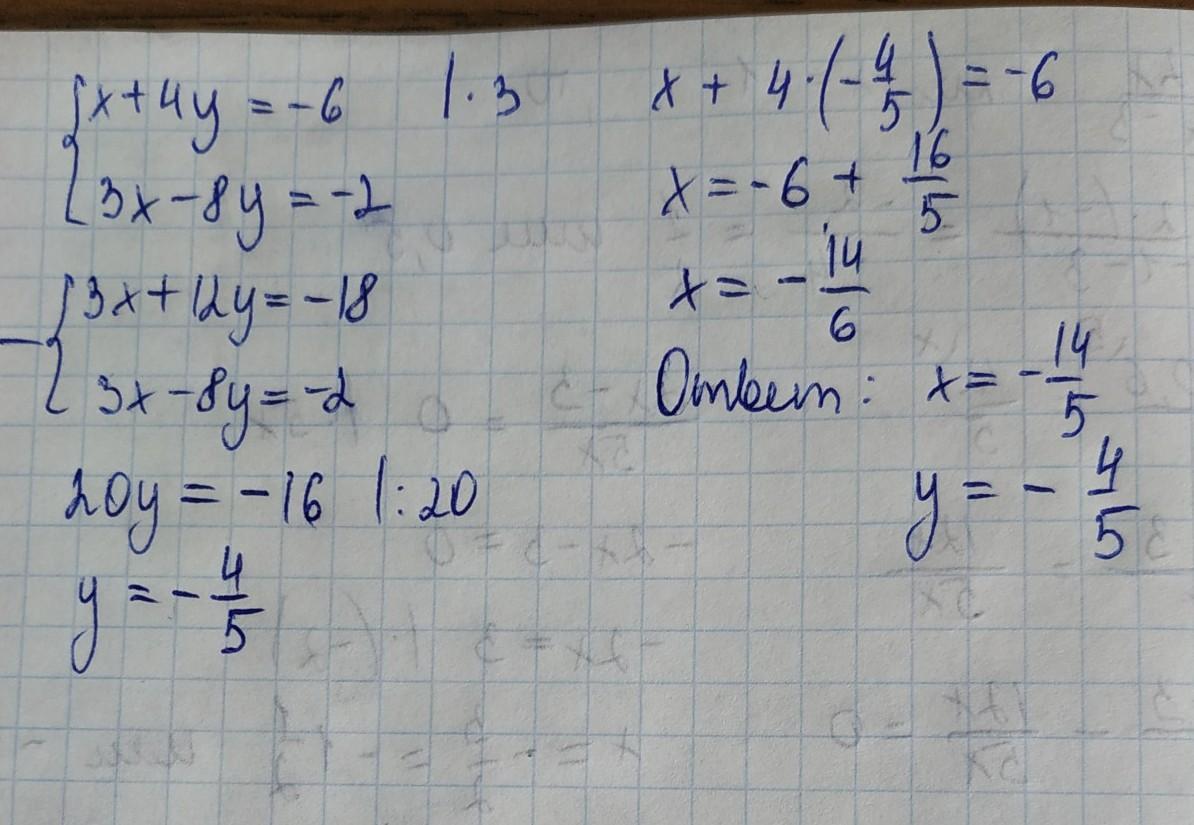 x + 4y = -6 | · 3
3x - 8y = -2
3x + 12y = -18
3x - 8y = -2
20y = -16 | : 20
y = - 4/5
x + 4 · (- 4/5) = -6
x = -6 + 16/5
x = - 14/6
Ответ: x = - 14/5
y = - 4/5